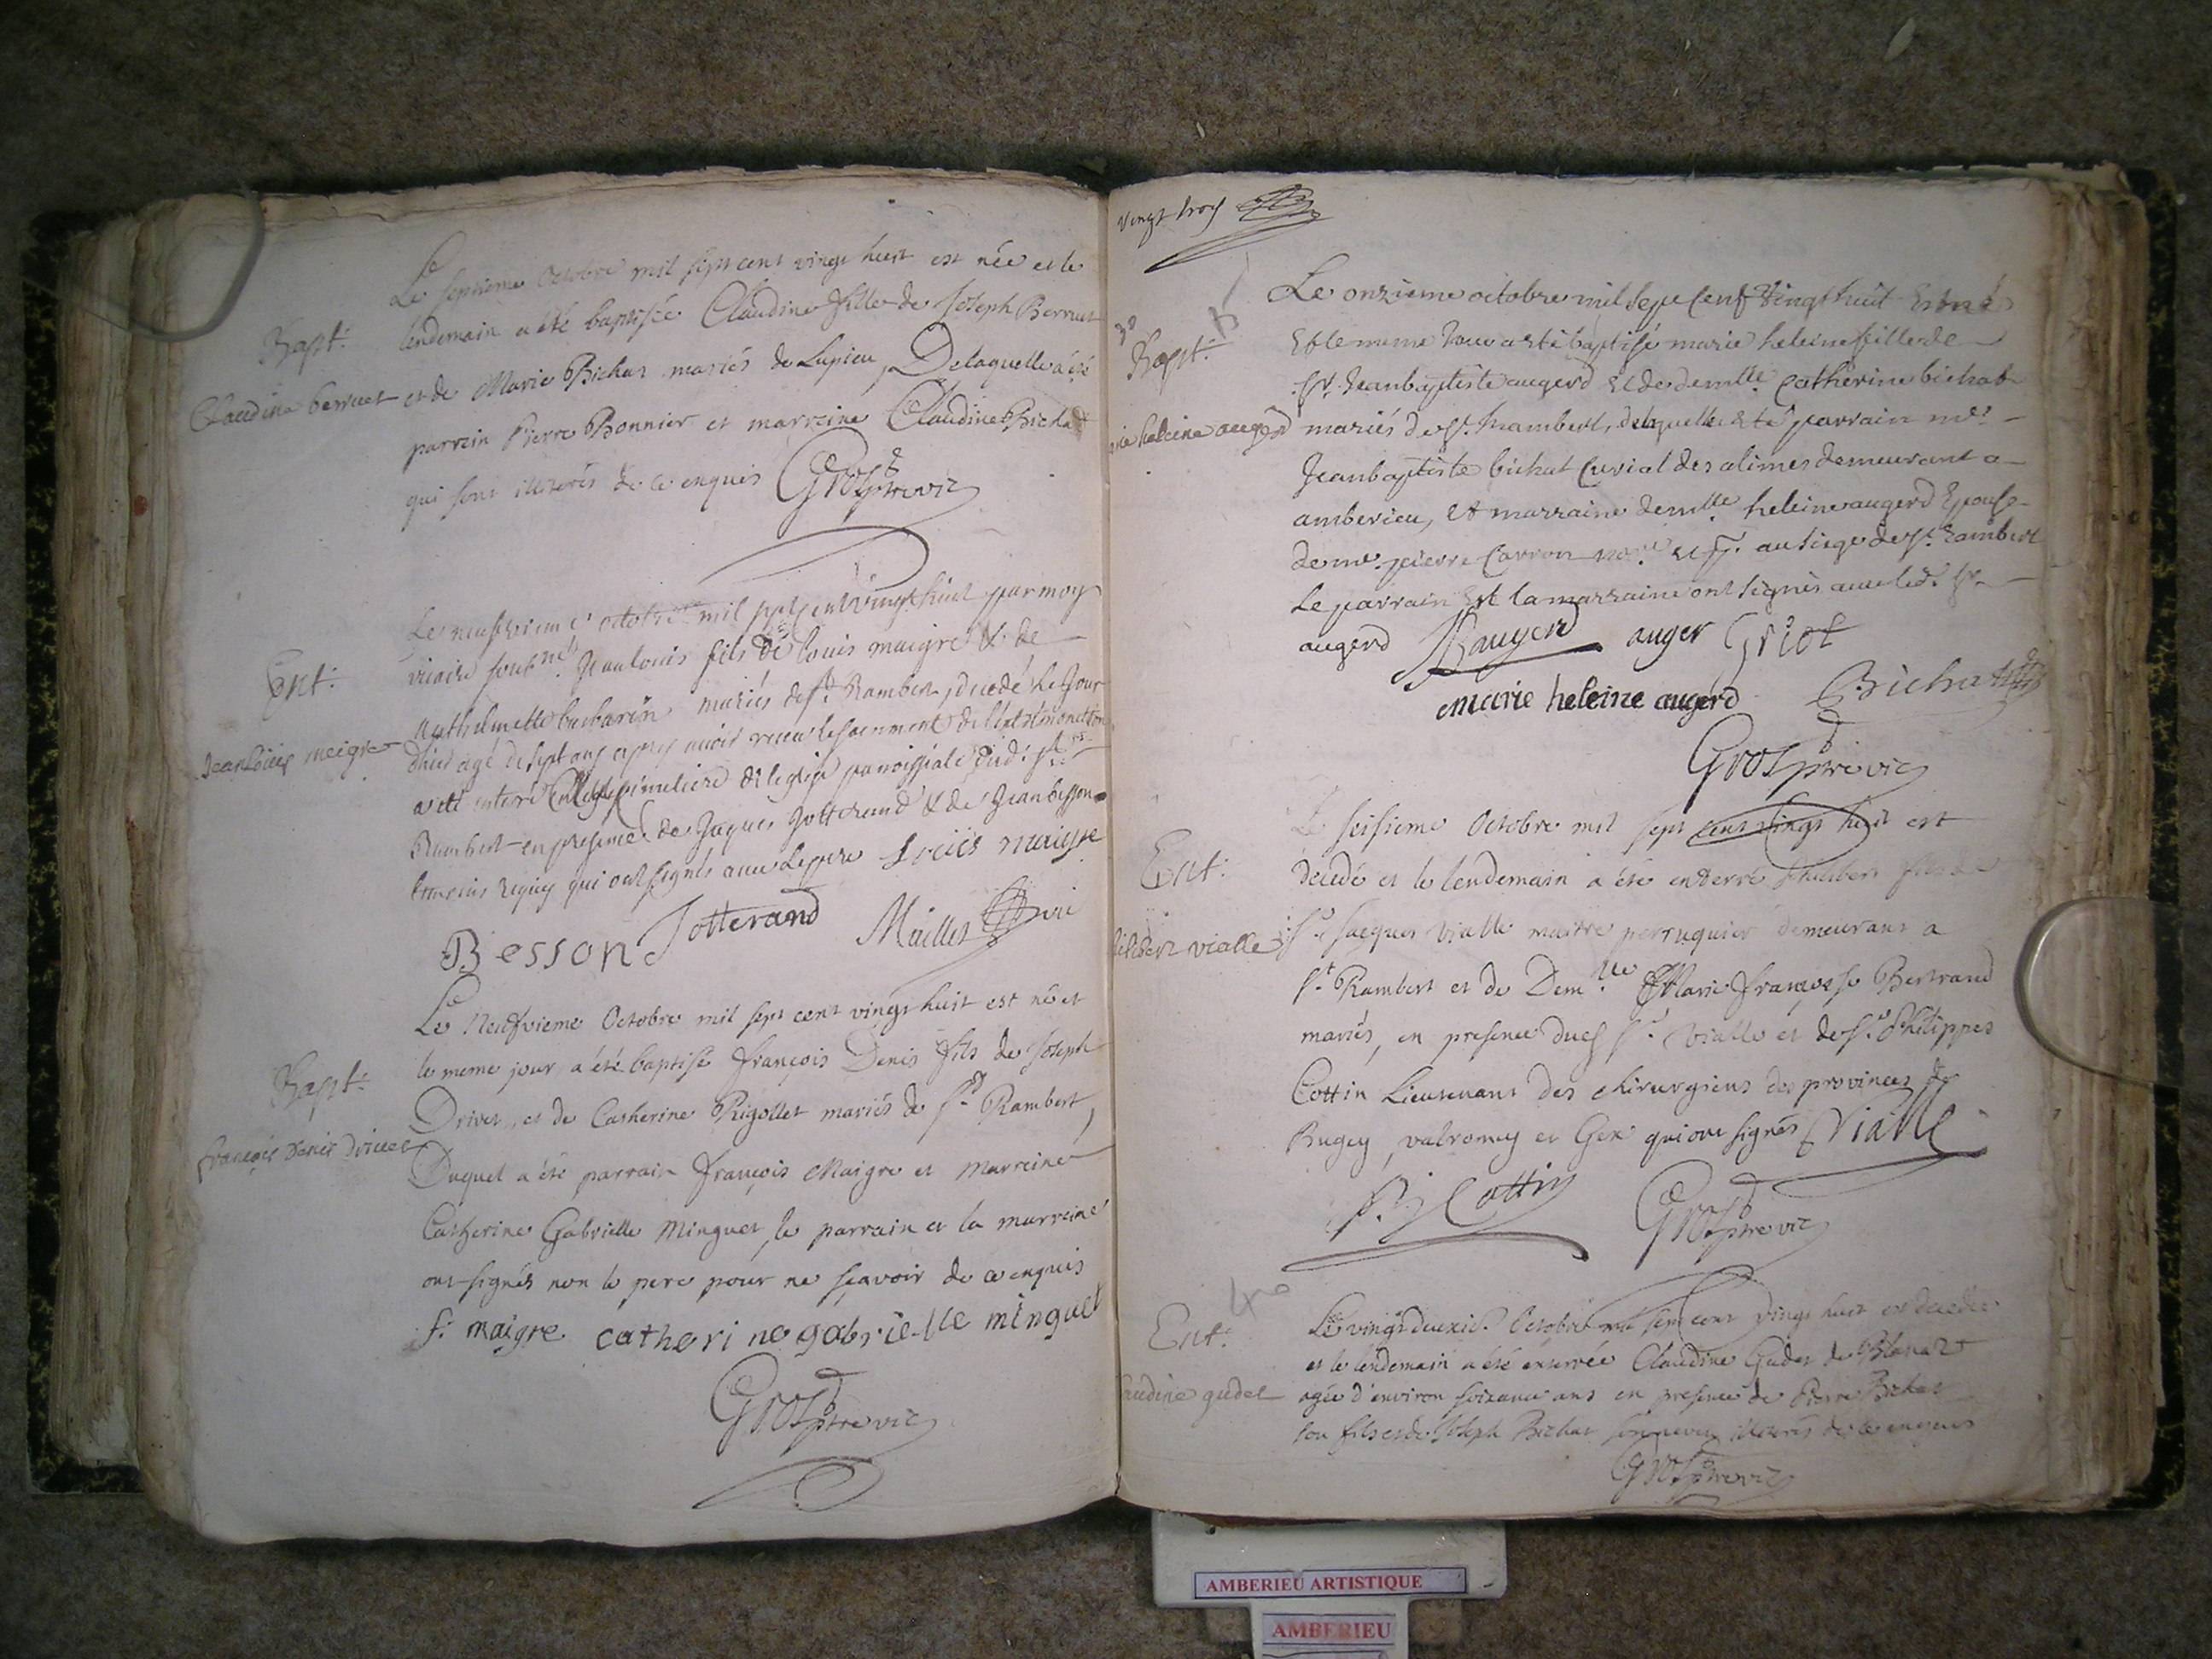 Le septieme Octobre mil sept cent vingt huit est née et le
Bapt:
lendemain a été baptisée Claudine fille de Joseph Berruet
Claudine berruet
et de Marie Bichat mariés de Lupieu, De laquelle a été
parrein Pierre Bonnier et marreine Claudine Bichat
qui sont illiterés de ce enquis Grosptrevic
Le neufvieme octobre mil sept cent vingt huit par moy
Ent:
vicaire soussné Jean louis fils de louis maigre & de
Anthelmette barbarin mariés de st Rambert, decedé le jour
Jean loüis meigre
d'hier agé de sept ans apres avoir receu le sacrement de l'extremonction
a été enterré cimetiere de leglise parroissiale dud. st
Rambert en presence de Jaques Jotterand & de Jean besson
qui ont signés avec le pere Loüis maigre
Besson Jotterand Maillet vic
Le Neufvieme Octobre mil sept cent vingt huit est né et
Bapt:
le meme jour a été baptisé françois Denis fils de Joseph
Drivet, et de Catherine Rigollet mariés de st Rambert,
françois denis drivet
Duquel a été parrain françois Maigre et marreine
Catherine Gabrielle Minguet, le parrain et la marreine
ont signés non le pere pour ne sçavoir de ce enquis
f: maigre catherine gabrielle minguet
Grosptrevic
vingt trois
Le onzieme octobre mil sept cent vingt huit est né
3e
Bapt:
Et le meme jour a eté baptisé marie heleine fille de
sr. Jean baptiste augerd et de demlle catherine bichat
heleine augerd
mariés de st. Rambert, de laquelle a eté parrain me
Jean baptiste bichat curial des alimes demeurant a
amberieu, et marraine demlle heleine augerd Epouse
de me. pierre Carron nore. au siege de st. Rambert
Le parrain et la marraine ont signés avec led. sr.
augerd JBaugerd auger Griot
marie heleine augerd Bichat
Grosptrevic
Le seisieme Octobre mil sept cent vingt huit est
Ent:
decedé et le lendemain a été enterré Philibert fils de
sr. Jacques Vialle maitre perruquier demeurant a
vialle
st. Rambert et de Demlle Marie françoise Bertrand
mariés, en presence dud. sr. Vialle et de sr. Philippes
Cottin Lieutenant des chirurgiens des provinces de
Bugey, valromey et Gex qui ont signés Vialle
Cottin Grosptrevic
4e
Ent:
Le vingt deuxie. Octobre mil sept cent vingt huit est decedée
et le lendemain a été enterrée Claudine Gudet de Blanaz
gudet
agée d'environ soixante ans en presence de Pierre Bichat
son fils et de Joseph Bichat son neveu illiterés de ce enquis
Grosptrevic
AMBERIEU ARTISTIQUE
AMBERIEU